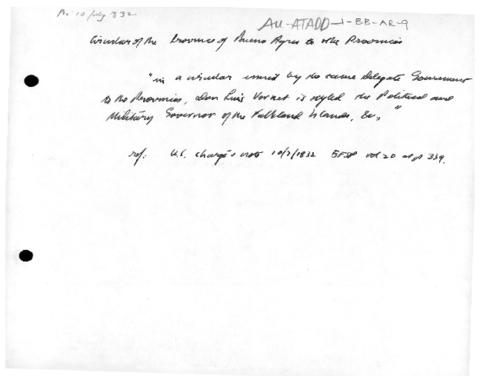 10 July 832
AU-ATADD-1-BB-AR-9
Circular of the Province of Buenos Ayres to other Provinces
"in a circular issued by the same Delegate Government
to the Provinces, Don Luis Vernet is styled the Political and
Military Governor of the Falkland Islands, &c,"
ref: U.S. Chargé's note 10/7/1832 BFSP vol 20 at p 339.